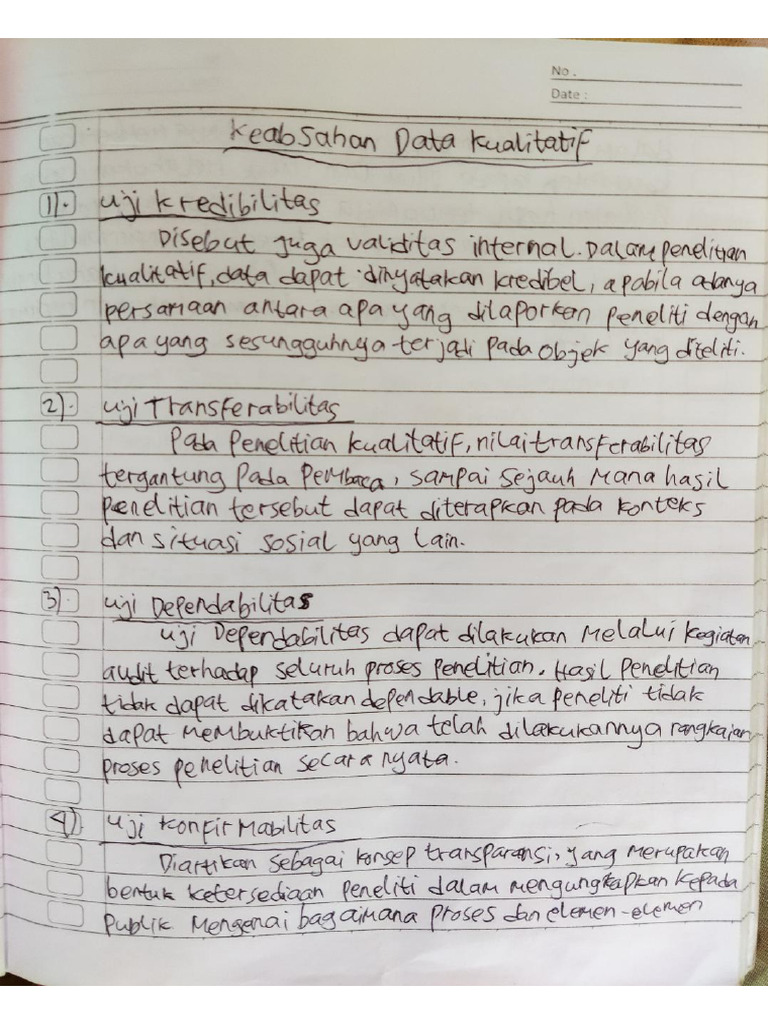 No.
Date:
Keabsahan Data Kualitatif
1). Uji Kredibilitas
Disebut juga validitas internal. Dalam penelitian
kualitatif, data dapat dinyatakan kredibel, apabila adanya
persamaan antara apa yang dilaporkan peneliti dengan
apa yang sesungguhnya terjadi pada objek yang diteliti.
2). Uji Transferabilitas
Pada Penelitian kualitatif, nilai transferabilitas
tergantung pada Pembaca, sampai sejauh mana hasil
penelitian tersebut dapat diterapkan pada konteks
dan situasi sosial yang lain.
3). Uji Dependabilitas
Uji Dependabilitas dapat dilakukan melalui kegiatan
audit terhadap seluruh proses penelitian. Hasil penelitian
tidak dapat dikatakan dependable, jika peneliti tidak
dapat membuktikan bahwa telah dilakukannya rangkaian
proses penelitian secara nyata.
4) Uji Konfirmabilitas
Diartikan sebagai konsep transparansi, yang merupakan
bentuk ketersediaan peneliti dalam mengungkapkan kepada
Publik mengenai bagaimana proses dan elemen-elemen